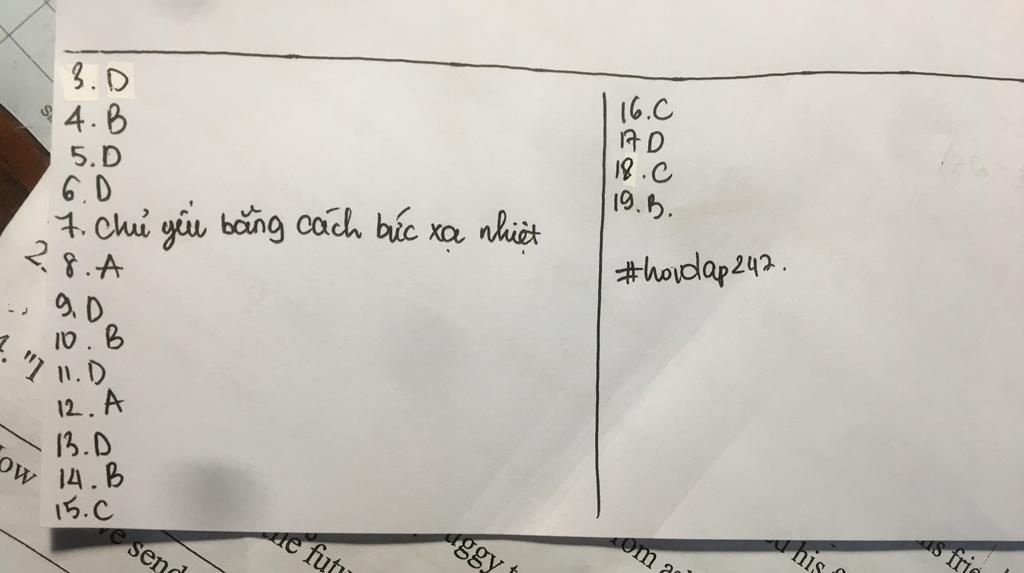 3. D
4. B
5. D
6. D
7. Chủ yếu bằng cách bức xạ nhiệt
8. A
9. D
10. B
11. D
12. A
13. D
14. B
15. C
16. C
17 D
18. C
19. B.
#hoidap247.
2.
"1
ow
e send
he futu
uggy t
rom a
d his f
is frie